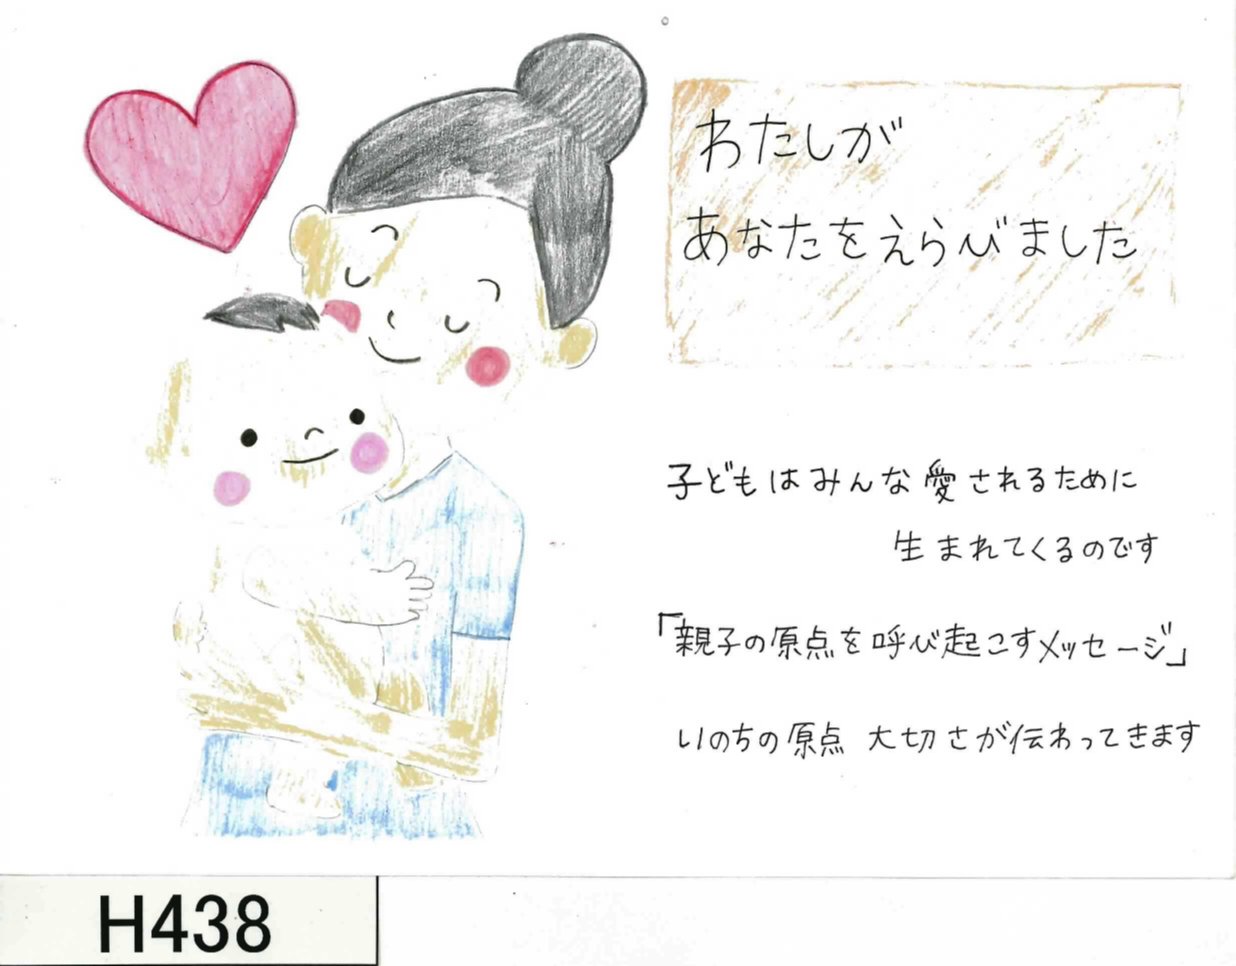 わたしが
あなたをえらびました
子どもはみんな愛されるために
生まれてくるのです
「親子の原点を呼び起こすメッセージ」
いのちの原点 大切さが伝わってきます
H438